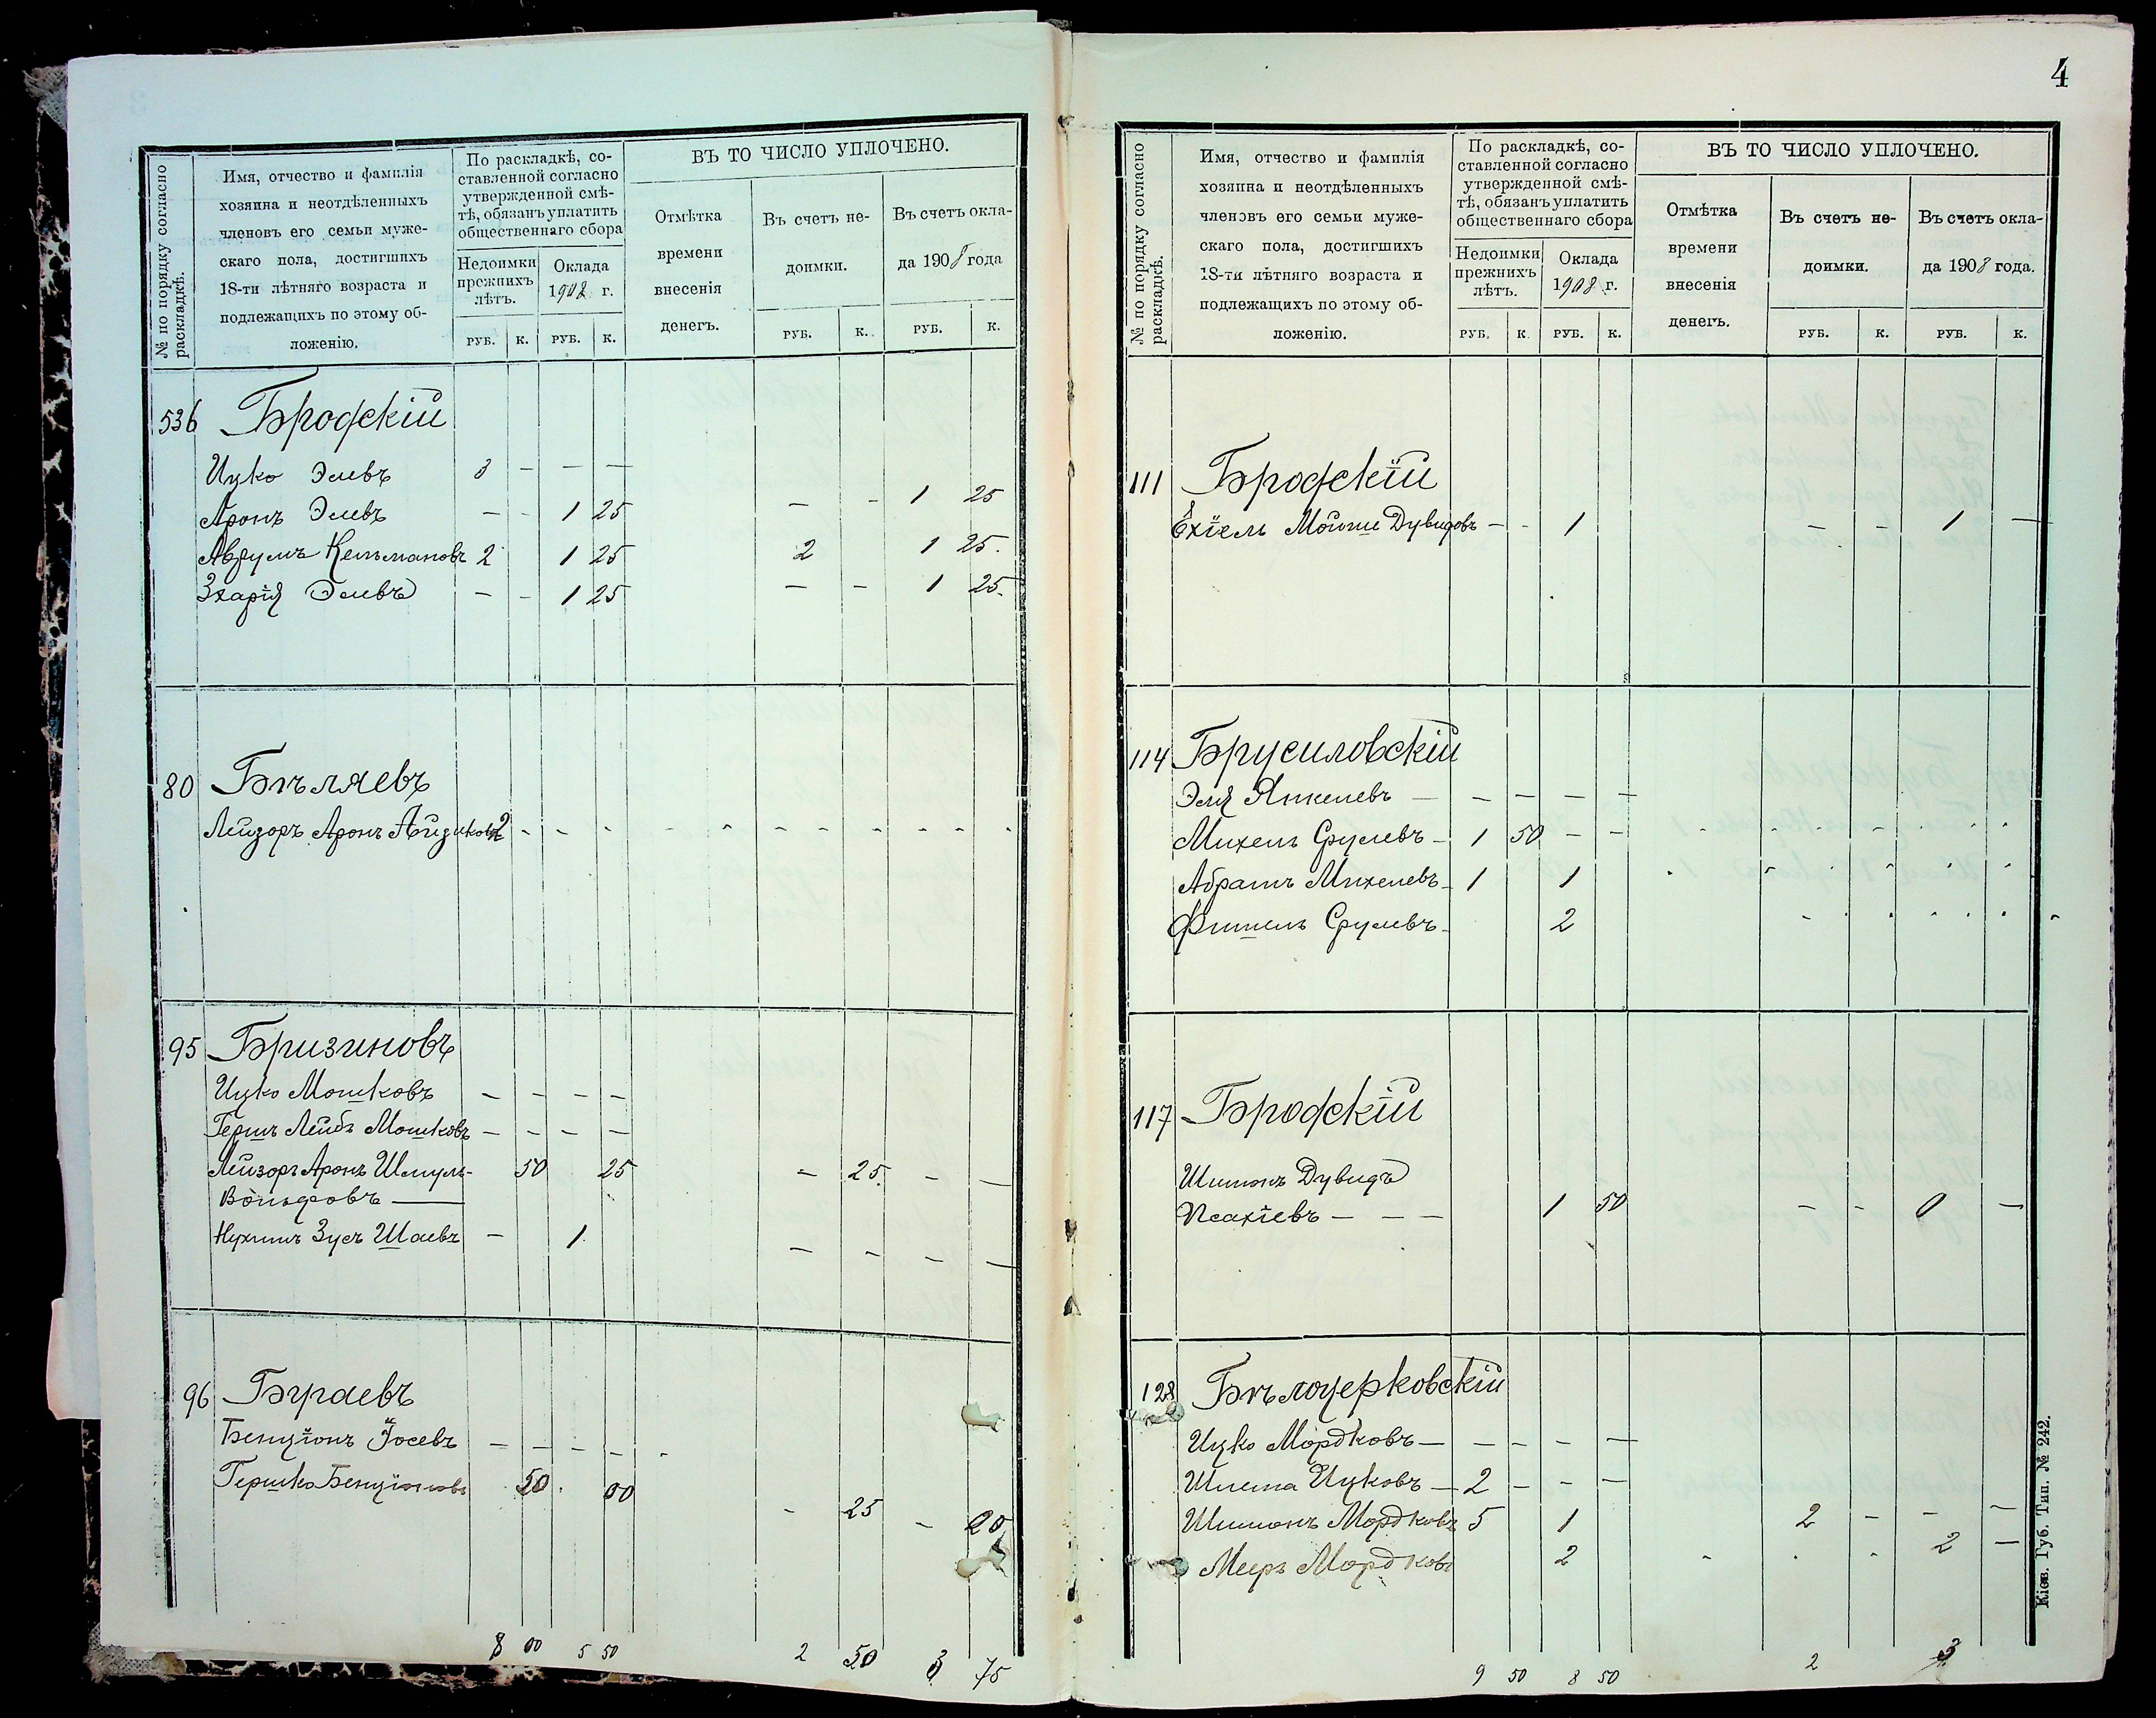 ВЪ ТО ЧИСЛО УПЛОЧЕНО.
№ по порядку согласно раскладкѣ.
Имя, отчество и фамилія
хозяина и неотдѣленныхъ
членовъ его семьи муже-
скаго пола, достигшихъ
18-ти лѣтняго возраста и
подлежащихъ по этому об-
ложенію.
По раскладкѣ, со-
ставленной согласно
утвержденной смѣ-
тѣ, обязанъ уплатить
общественнаго сбора
Недоимки
прежнихъ
лѣтъ.
Оклада
1908 г.
Отмѣтка
времени
внесенія
денегъ.
Въ счетъ не-
доимки.
Въ счетъ окла-
да 1908 года
РУБ. К. РУБ. К. РУБ. К. РУБ. К.
536 Бродскій
Ицко Элевъ 3 — — —
Аронъ Элевъ — - 1 25 — - 1 25
Аврумъ Кельмановъ 2 1 25 2 1 25.
Зхарія Элевъ — - 1 25 — — 1 25.
80 Бѣляевъ
Лейзоръ Аронъ Айзиковъ 2 - - - - - - - - - - -
95 Бризиновъ
Ицко Мошковъ — — — —
Гершъ Лейбъ Мошковъ — — — —
Лейзоръ Аронъ Шмуль- 50 25 — 25. — —
Вольфовъ —
Нухимъ Зусъ Шаевъ — 1 — — — —
96 Бураевъ
Бенціонъ Іосевъ — — — — -
Гершко Бенціоновъ 50 - 25 -
8 00 5 50 2 50 3 75
4
ВЪ ТО ЧИСЛО УПЛОЧЕНО.
№ по порядку согласно раскладкѣ.
Имя, отчество и фамилія
хозяина и неотдѣленныхъ
членовъ его семьи муже-
скаго пола, достигшихъ
18-ти лѣтняго возраста и
подлежащихъ по этому об-
ложенію.
По раскладкѣ, со-
ставленной согласно
утвержденной смѣ-
тѣ, обязанъ уплатить
общественнаго сбора
Недоимки
прежнихъ
лѣтъ.
Оклада
1908 г.
Отмѣтка
времени
внесенія
денегъ.
Въ счетъ не-
доимки.
Въ счетъ окла-
да 1908 года.
РУБ. К. РУБ. К. РУБ. К. РУБ. К.
111 Бродскій
Ехіель Мойше Дувидовъ — - 1 — — 1 —
114 Брусиловскій
Эля Янкелевъ — — — — —
Михель Срулевъ - 1 50 — —
Абрамъ Михелевъ - 1 1
Фишель Срулевъ - 2
117 Бродскій
Шимонъ Дувидъ
Псахіевъ — — — 1 50 — - —
128 Бѣлоцерковскій
Ицко Мордковъ — — — — —
Шлема Ицковъ — 2 — — —
Шимонъ Мордковъ 5 1 2 — — —
Мееръ Мордковъ 2 2 —
9 50 8 50 2 3
Кіев. Губ. Тип. № 242.